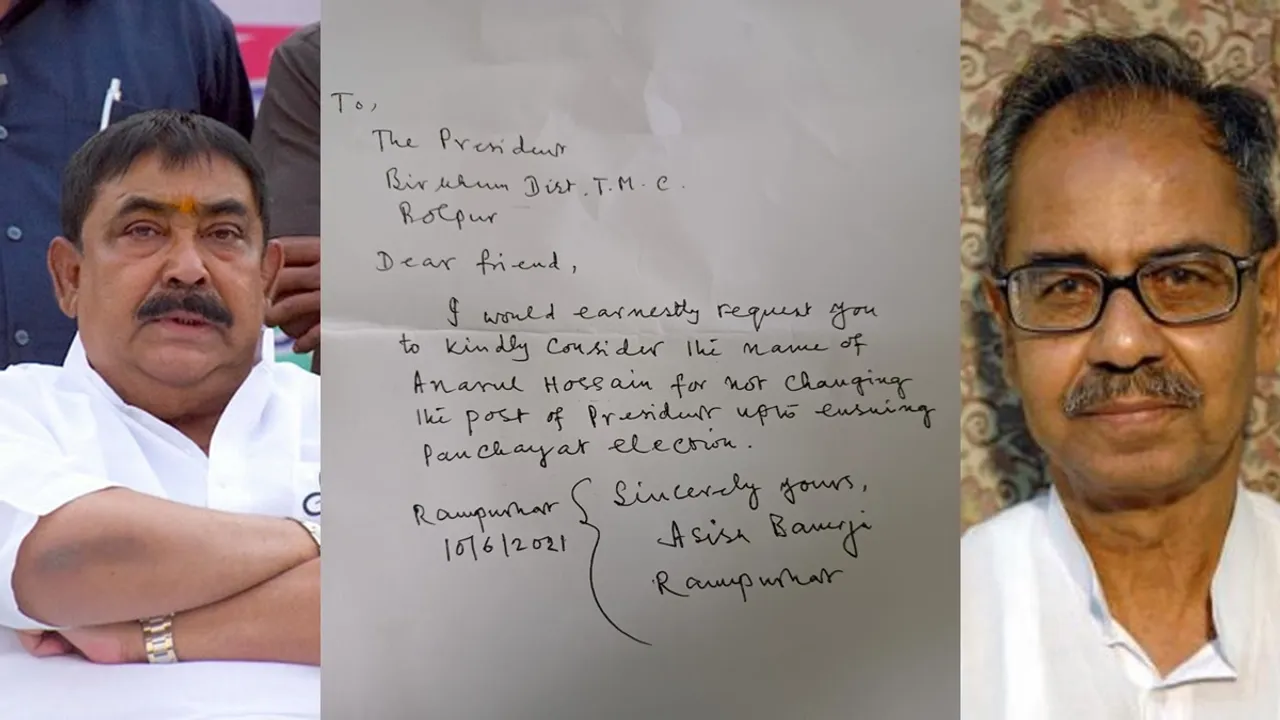 To,
The President
Birbhum Dist. T.M.C.
Bolpur
Dear friend,
I would earnestly request you
to kindly consider the name of
Anarul Hossain for not changing
the post of President upto ensuing
Panchayat election.
Rampurhat
10/6/2021
Sincerely yours,
Asish Banerji
Rampurhat